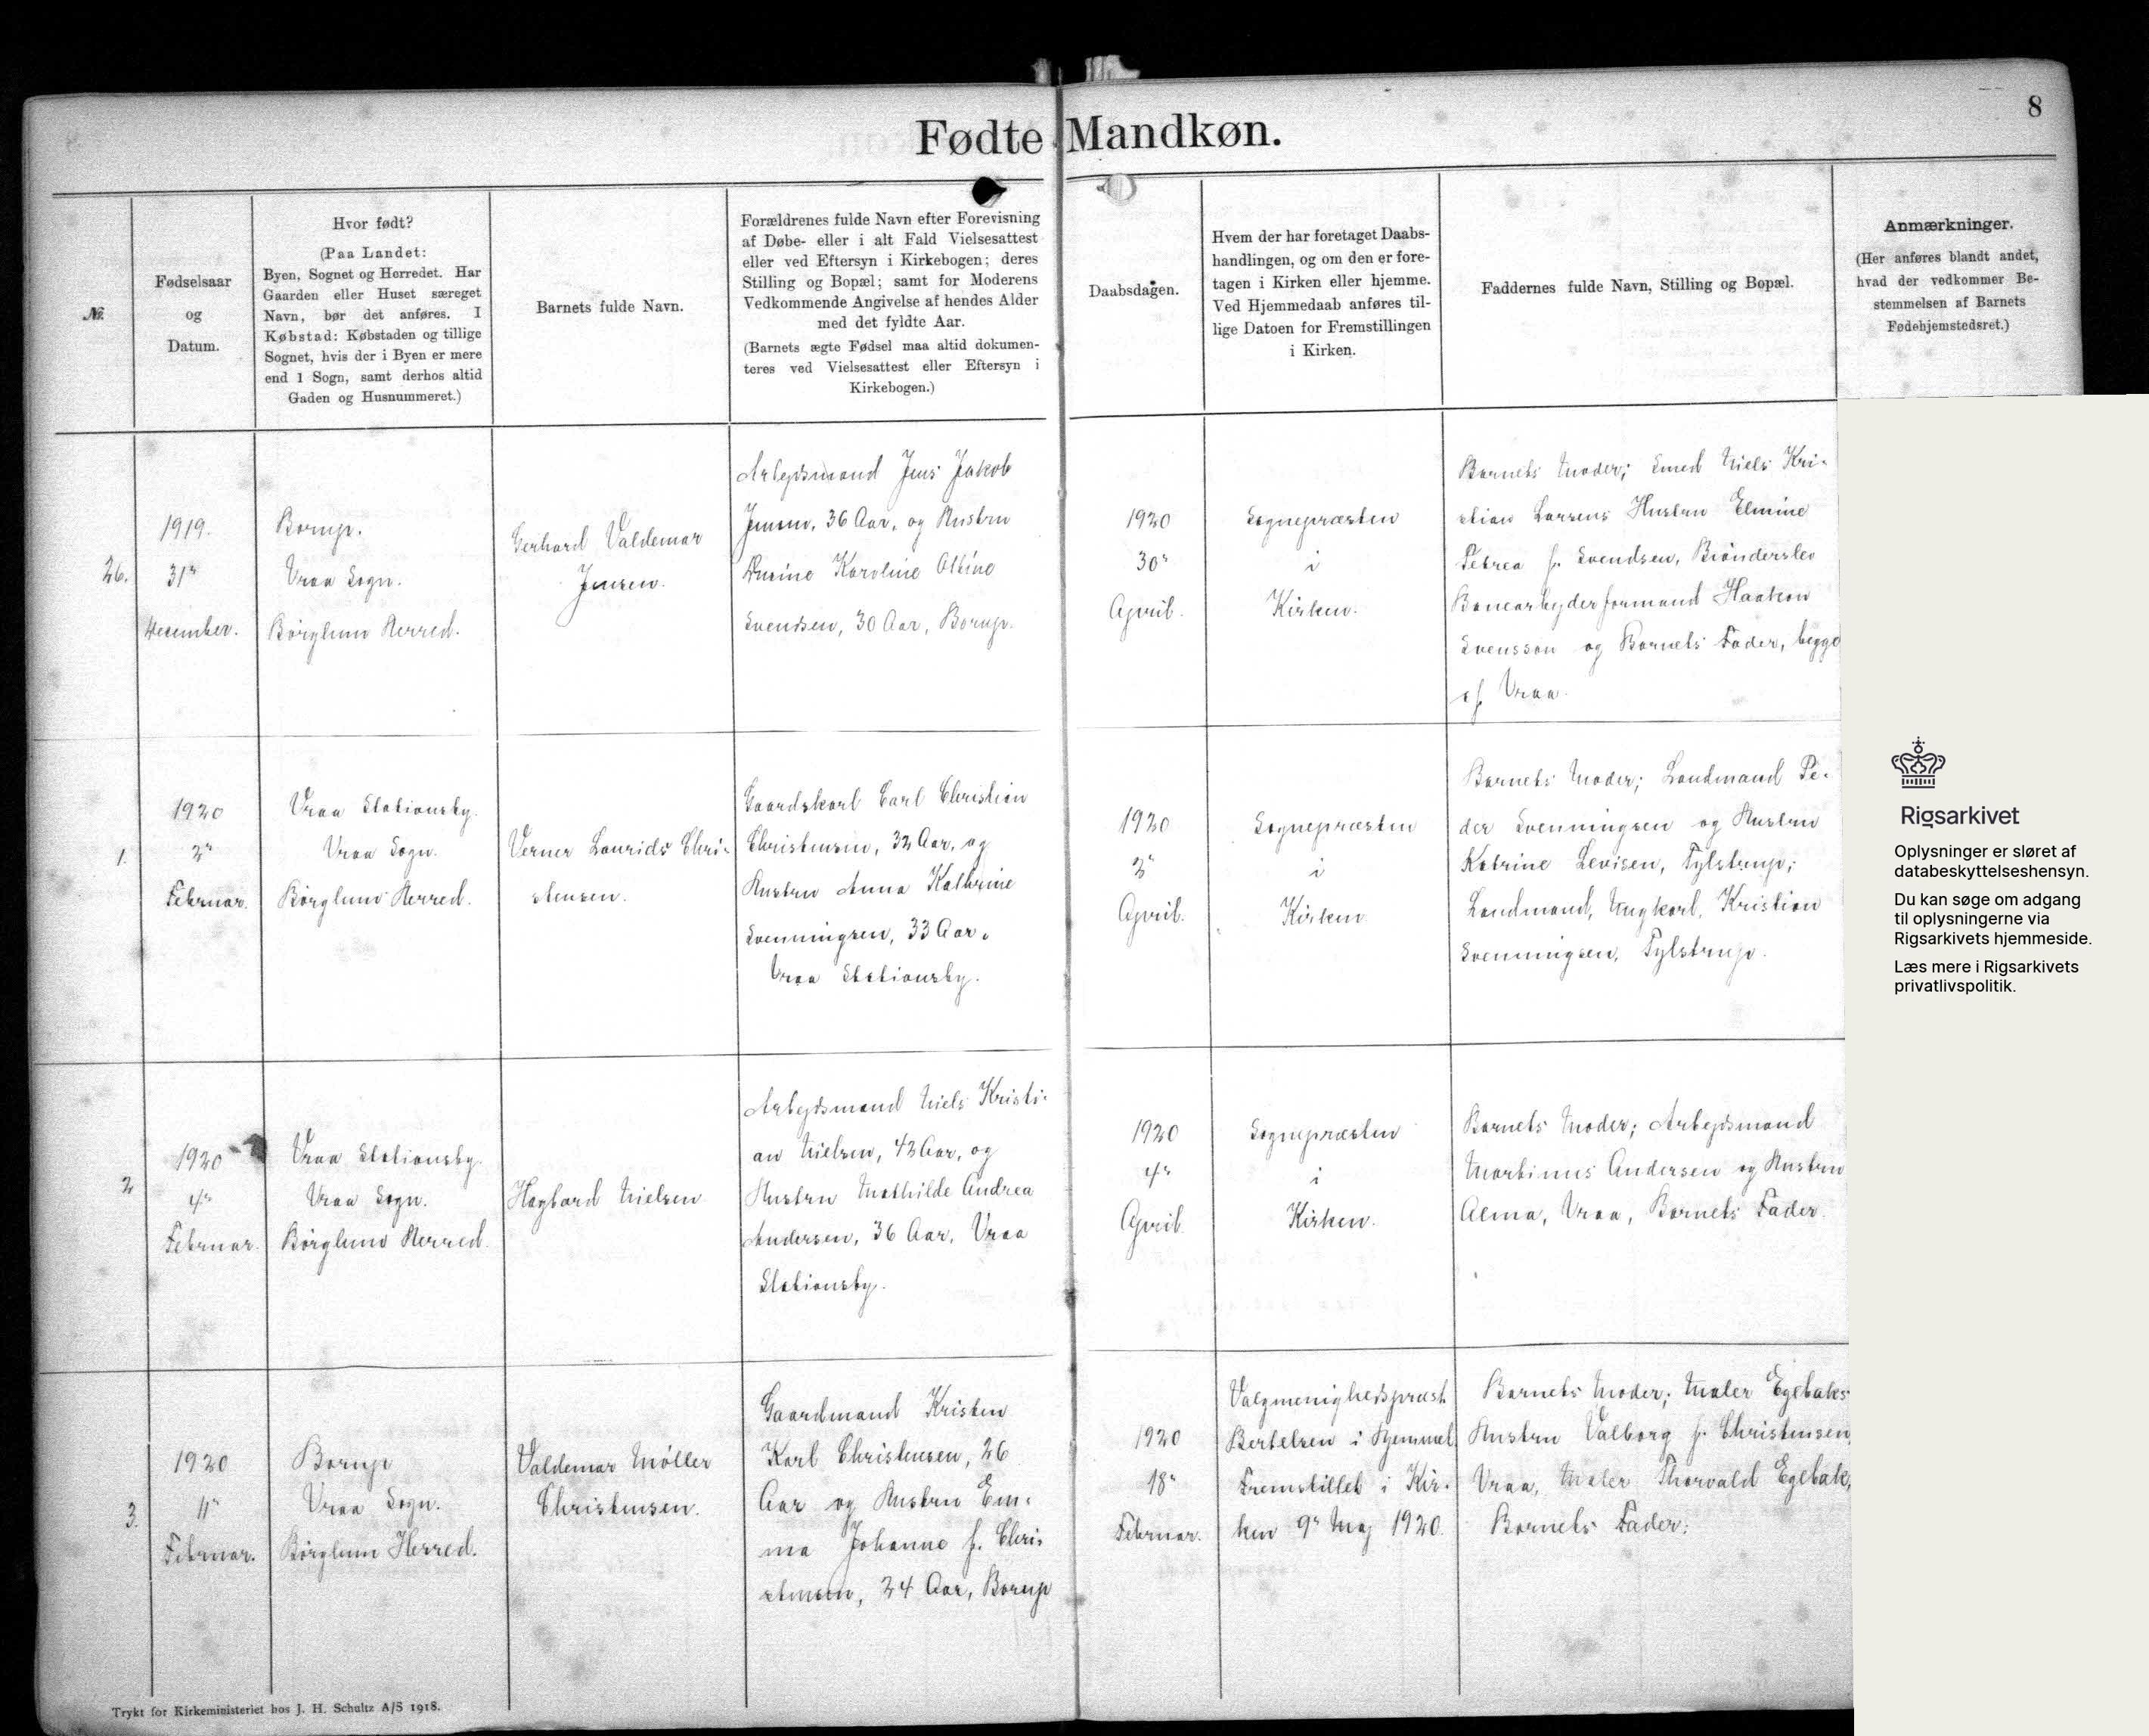 8
Fødte Mandkøn.
№
Fødselsaar
og
Datum.
Hvor født?
(Paa Landet:
Byen, Sognet og Herredet. Har
Gaarden eller Huset særeget
Navn, bør det anføres. I
Købstad: Købstaden og tillige
Sognet, hvis der i Byen er mere
end 1 Sogn, samt derhos altid
Gaden og Husnummeret.)
Barnets fulde Navn.
Forældrenes fulde Navn efter Forevisning
af Døbe- eller i alt Fald Vielsesattest
eller ved Eftersyn i Kirkebogen; deres
Stilling og Bopæl; samt for Moderens
Vedkommende Angivelse af hendes Alder
med det fyldte Aar.
(Barnets ægte Fødsel maa altid dokumen-
teres ved Vielsesattest eller Eftersyn i
Kirkebogen.)
Daabsdagen.
Hvem der har foretaget Daabs-
handlingen, og om den er fore-
tagen i Kirken eller hjemme.
Ved Hjemmedaab anføres til-
lige Datoen for Fremstillingen
i Kirken.
Faddernes fulde Navn, Stilling og Bopæl.
Anmærkninger.
(Her anføres blandt andet,
hvad der vedkommer Be-
stemmelsen af Barnets
Fødehjemstedsret.)
26.
1919.
31"
December.
Borup.
Vraa Sogn.
Børglum Herred.
Gerhard Valdemar
Jensen.
Arbejdsmand Jens Jakob
Jensen, 36 Aar, og Hustru
Karoline
Svendsen, 30 Aar, Borup.
1920
30"
April.
Sognepræsten
i
Kirken.
Barnets Moder; Smed Niels Kri-
stian Larsens Hustru Elmine
Petrea f. Svendsen, Brønderslev
Banearbejderformand Haakon
Svensson og Barnets Fader, begge
af Vraa.
1.
1920
2"
Februar.
Vraa Stationsby.
Vraa Sogn.
Børglum Herred.
Verner Laurids Chri-
stensen.
Gaardskarl Carl Christian
Christensen, 32 Aar, og
Hustru Anna Kathrine
Svenningsen, 33 Aar.
Vraa Stationsby.
1920
2"
April.
Sognepræsten
i
Kirken
Barnets Moder; Landmand Pe-
der Svenningsen og Hustru
Katrine Levisen, Tylstrup;
Landmand, Ungkarl, Kristian
Svenningsen, Tylstrup.
2
1920
4"
Februar.
Vraa Stationsby.
Vraa Sogn.
Børglum Herred.
Hagbard Nielsen
Arbejdsmand Niels Kristi-
an Nielsen, 42 Aar, og
Hustru Mathilde Andrea
Andersen, 36 Aar, Vraa
Stationsby.
1920
4"
April
Sognepræsten
i
Kirken.
Barnets Moder; Arbejdsmand
Martinus Andersen og Hustru
Alma, Vraa, Barnets Fader.
3.
1920
11"
Februar.
Borup
Vraa Sogn.
Børglum Herred.
Valdemar Møller
Christensen.
Gaardmand Kristen
Karl Christensen, 26
Aar og Hustru Em-
ma Johanne f. Chri-
stensen, 24 Aar, Borup
1920
18"
Februar.
Valgmenighedspræst
Bertelsen i Hjemmet.
Fremstillet i Kir-
ken 9" Maj 1920.
Barnets Moder; Maler Egebaks
Hustru Valborg f. Christensen,
Vraa, Maler Thorvald Egebak,
Barnets Fader.
Trykt for Kirkeministeriet hos J. H. Schultz A/S 1918.
Rigsarkivet
Oplysninger er sløret af
databeskyttelseshensyn.
Du kan søge om adgang
til oplysningerne via
Rigsarkivets hjemmeside.
Læs mere i Rigsarkivets
privatlivspolitik.